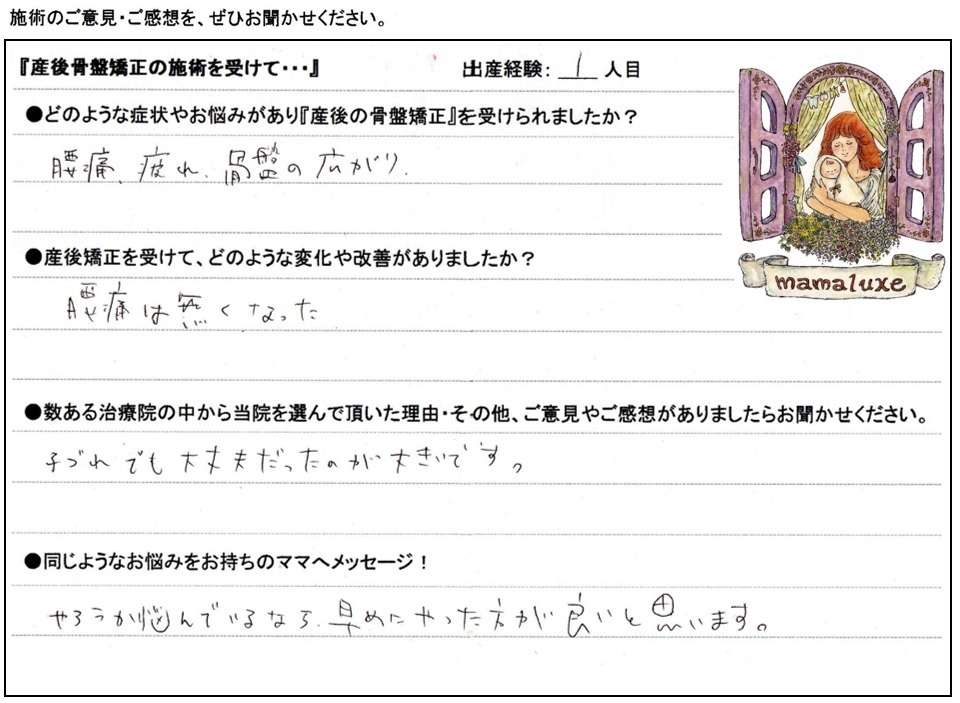 施術のご意見・ご感想を、ぜひお聞かせください。
『産後骨盤矯正の施術を受けて・・・』 出産経験： 1 人目
●どのような症状やお悩みがあり『産後の骨盤矯正』を受けられましたか？
腰痛、疲れ、骨盤の広がり.
●産後矯正を受けて、どのような変化や改善がありましたか？
腰痛は無くなった
mamaluxe
●数ある治療院の中から当院を選んで頂いた理由・その他、ご意見やご感想がありましたらお聞かせください。
子づれでも大丈夫だったのが大きいです。
●同じようなお悩みをお持ちのママへメッセージ！
やろうか悩んでいるなら、早めにやった方が良いと思います。